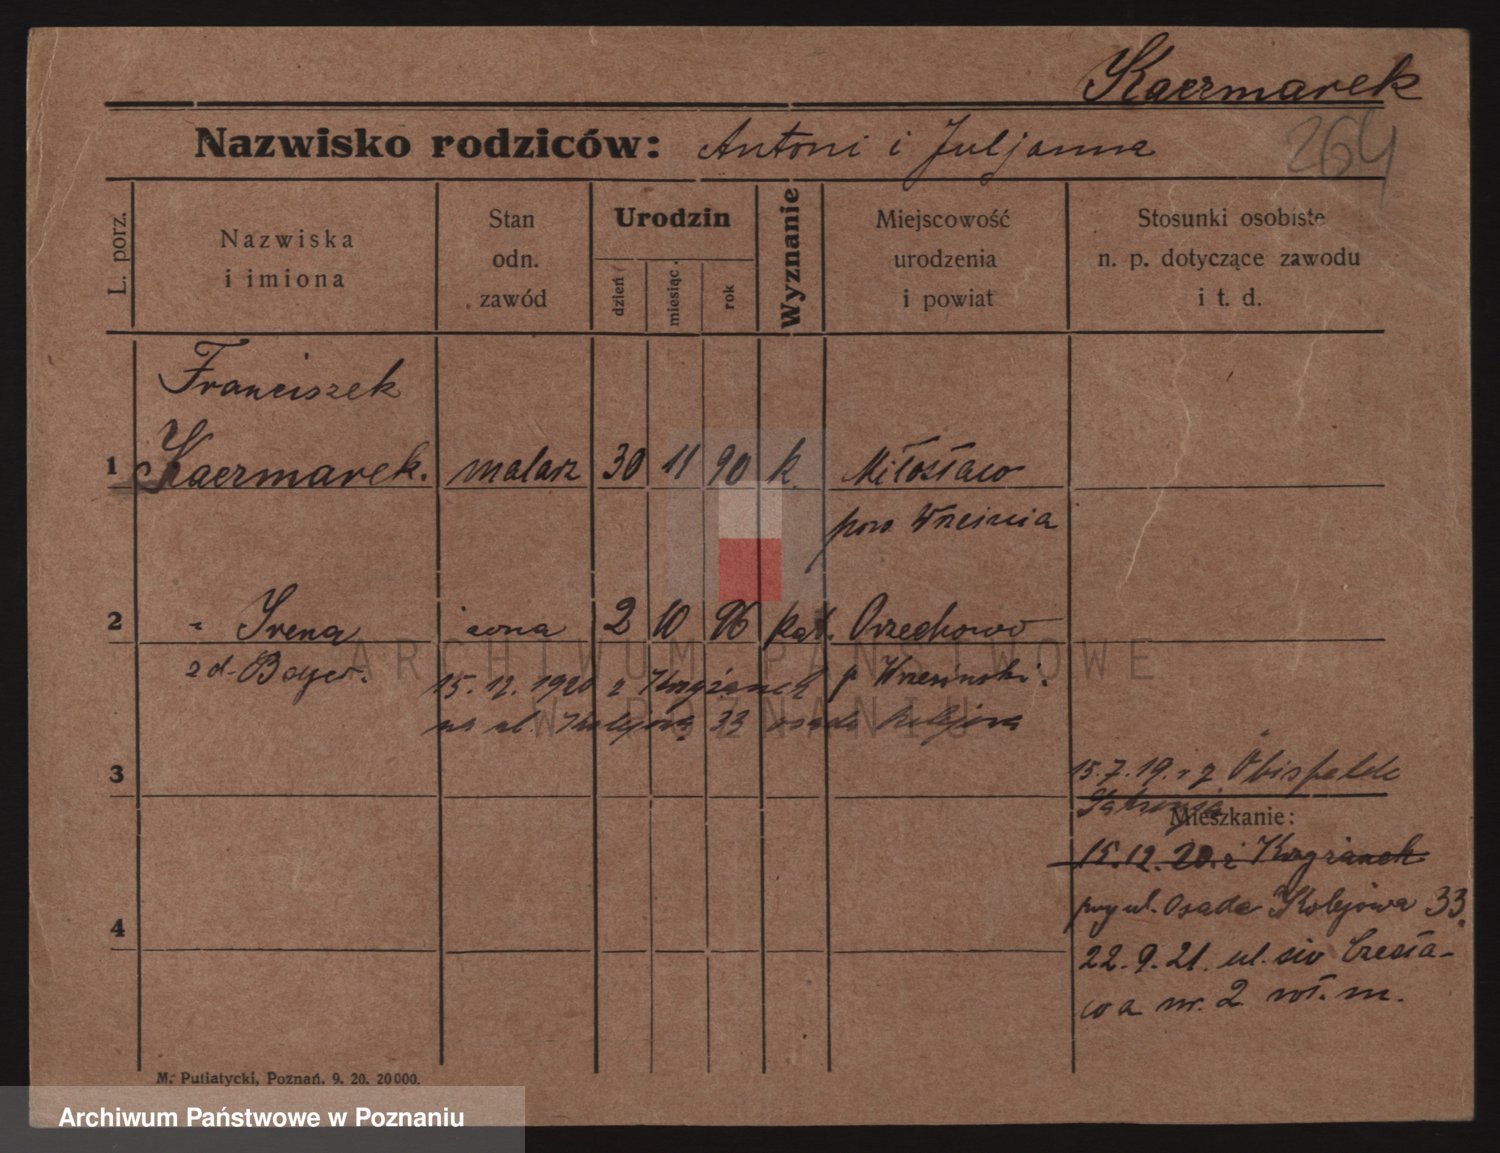 Kaczmarek
Nazwisko rodziców: Antoni i Juljanna
264
L. porz.
Nazwiska
i imiona
Stan
odn.
zawód
Urodzin
dzień
miesiąc
rok
Wyznanie
Miejscowość
urodzenia
i powiat
Stosunki osobiste
n. p. dotyczące zawodu
i t. d.
Franciszek
1 Kaczmarek. malarz 30 11 90 k. Miłosław
pow. Września
2 " Irena żona 2 10 96 kat. Orzechowo
zd. Beyer. p. Wrzesiński.
15. 12. 1920 z Krzyżanek
na ul. Kolejową 33 osada kolejowa
3
15.7.19.
Mieszkanie:
15.12.20. z Krzyżanek
przy ul. Osada Kolejowa 33.
4
22.9.21. ul. św Czesła-
wa nr. 2 wł. m.
M. Putiatycki, Poznań. 9. 20. 20000.
ARCHIWUM PAŃSTWOWE
W POZNANIU
Archiwum Państwowe w Poznaniu